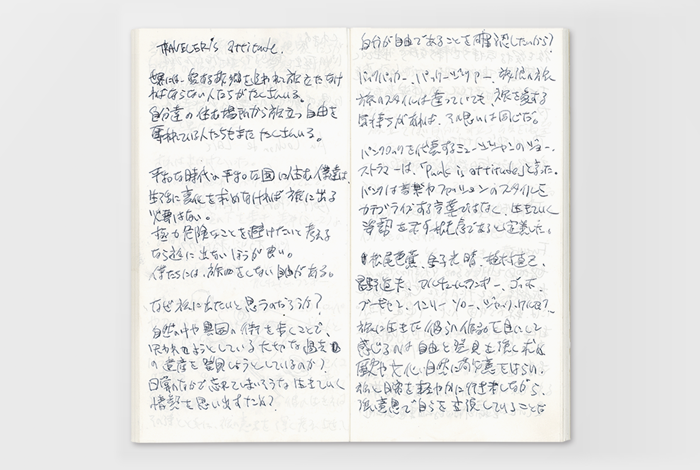 TRAVELER'S attitude.
世界には、愛する故郷を追われて旅立たなけ
ればならない人たちがたくさんいる。
自分達の住む場所から旅立つ自由を
奪われている人たちもまた たくさんいる。
平和な時代の平和な国に住む僕達は、
生活に変化を求めなければ旅に出る
必要はない。
極力危険なことを避けたいと考える
なら旅に出ないほうが良い。
僕たちには、旅をしない自由がある。
なぜ旅に出たいと思うのだろうか?
自然の中や異国の街を歩くことで、
失われようとしている大切な過去
の遺産を発見しようとしているのか?
日常のなかで忘れてしまいそうな生きていく
感覚を思い出すため?
自分が自由であることを確認したいから?
バックパッカー、バッグ
旅のスタイルは違っていても、旅を愛する
気持ちがあれば、その思いは同じだ。
パンクロックを代表するミュージシャンのジョー・
ストラマーは、「Punk is attitude」と言った。
パンクは音楽やファッションのスタイルを
カテゴライズする言葉ではなく、生きていく
姿勢を示す概念であると定義した。
松尾芭蕉、金子光晴、植村直己、
星野道夫、アルチュール・ランボー、ゴッホ、
ゴーギャン、ヘンリー・ソロー、ジャック・ケルアック、
旅に生きた彼らの作品を目にして
感じるのは自由と発見を強く求め
歴史や文化、自然に敬意をはらい、
旅と日常を軽やかに行き来しながら、
強い意思で自らを表現していることだ